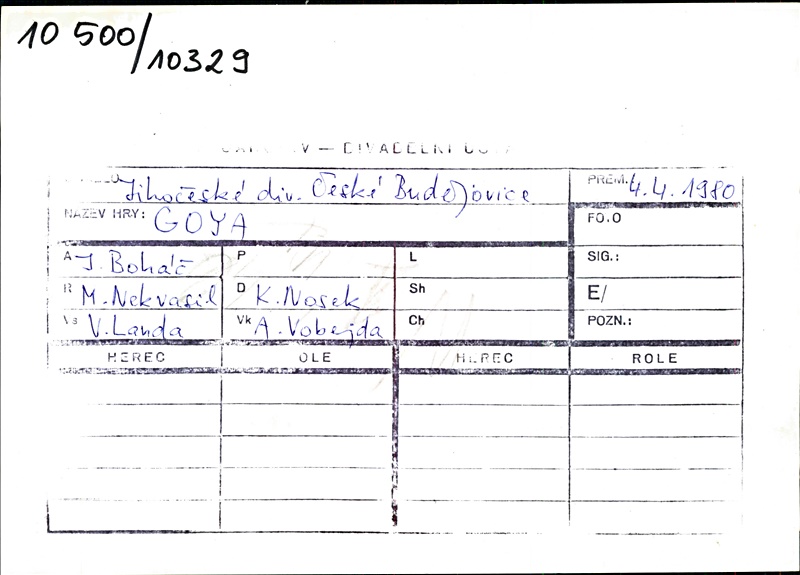 10 500/10329
V — DIVADELNÍ
Jihočeské div. České Budějovice PREM. 4.4. 1980
NÁZEV HRY: GOYA FO.O
A J. Boháč P L SIG.:
R M. Nekvasil D K. Nosek Sh E/
Vs V. Landa Vk A. Vobejda Ch POZN.:
HEREC OLE HEREC ROLE